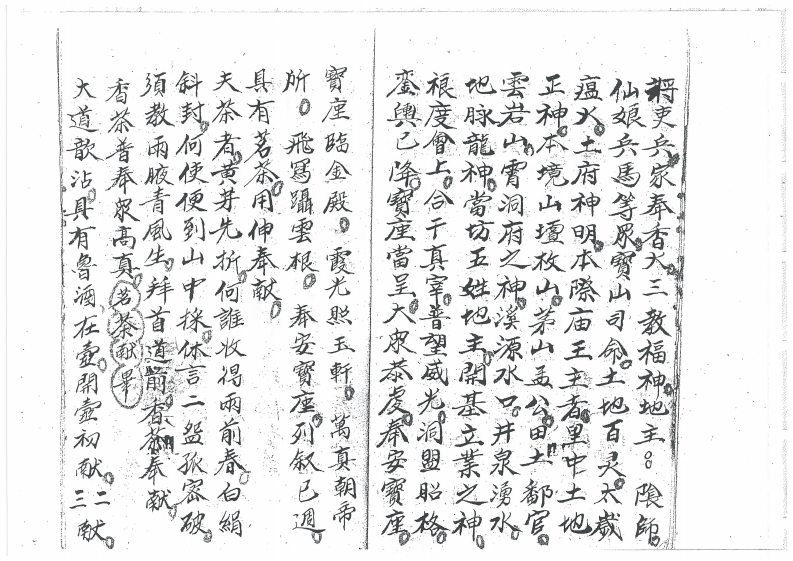 將吏兵家奉香火三教福神地主。陰師。
仙娘兵馬等眾寶山司命土地百灵太歲
瘟火土府神明本際庙王主者里中土地
正神本境山壇枚山茅山孟公田土都官
雲岩山霄洞府之神溪源水口井泉湧水
地脉龍神當坊五姓地主開基立業之神
禄度會上合干真宰普望威光洞盟昭格
鸞輿已降寶座當呈大眾恭虔奉安寶座
寶座臨金殿。霞光照玉軒。萬真朝帝
所。飛舄躡雲根。奉安寶座列叙已週。
具有茗茶用伸奉献。
夫茶者黄芽先折何誰收得雨前春白絹
斜封何使便到山中採休言二盌孤宻破
須教兩腋青風生拜首道前香茶奉献
香茶普奉眾高真 茗茶献畢
大道歆沾具有魯酒在壺開壺初献。二
三献。